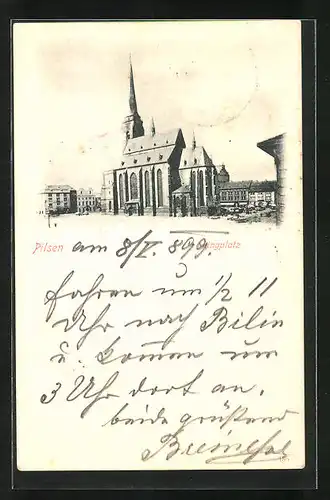 Pilsen am 8/I. 899. Ringplatz
fahren um ½ 11
Uhr nach Bilin
u. kommen um
3 Uhr dort an.
beide grüßend